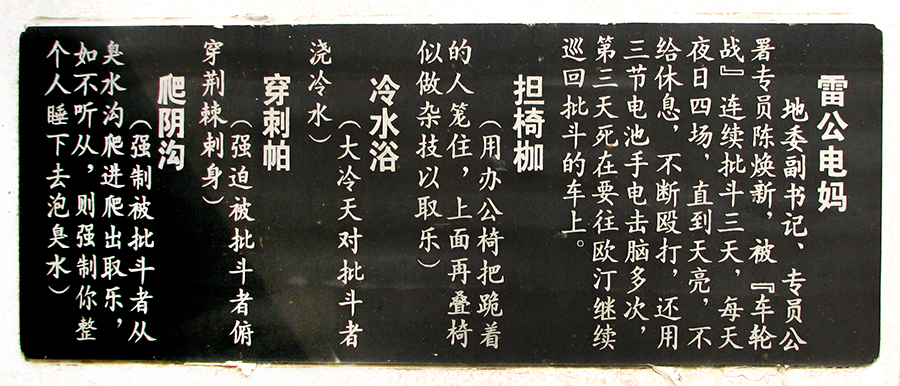 雷公电妈
地委副书记、专员公
署专员陈焕新，被『车轮
战』连续批斗三天，每天
夜日四场，直到天亮，不
给休息，不断殴打，还用
三节电池手电击脑多次，
第三天死在要往欧汀继续
巡回批斗的车上。
担椅枷
（用办公椅把跪着
的人笼住，上面再叠椅
似做杂技以取乐）
冷水浴
（大冷天对批斗者
浇冷水）
穿刺帕
（强迫被批斗者俯
穿荆棘刺身）
爬阴沟
（强制被批斗者从
臭水沟爬进爬出取乐，
如不听从，则强制你整
个人睡下去泡臭水）